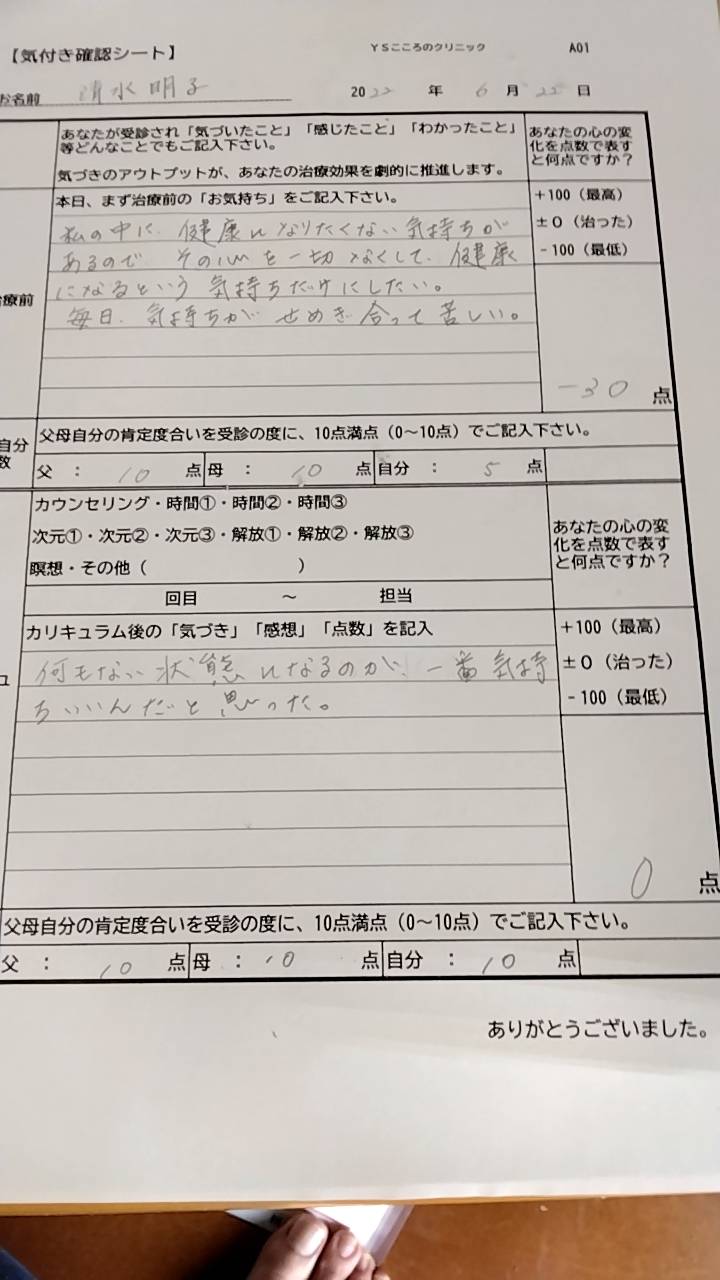 【気付き確認シート】 YSこころのクリニック A01
お名前 清水明子 2022 年 6 月 22 日
あなたが受診され「気づいたこと」「感じたこと」「わかったこと」
等どんなことでもご記入下さい。
気づきのアウトプットが、あなたの治療効果を劇的に推進します。
あなたの心の変
化を点数で表す
と何点ですか？
療前
本日、まず治療前の「お気持ち」をご記入下さい。
私の中に、健康になりたくない気持ちが
あるので、その心を一切なくして、健康
になるという気持ちだけにしたい。
毎日、気持ちがせめぎ合って苦しい。
+100（最高）
±0（治った）
-100（最低）
-30 点
自分
数
父母自分の肯定度合いを受診の度に、10点満点（0～10点）でご記入下さい。
父 ： 10 点 母 ： 10 点 自分 ： 5 点
カウンセリング・時間①・時間②・時間③
次元①・次元②・次元③・解放①・解放②・解放③
瞑想・その他（ ）
回目 ～ 担当
あなたの心の変
化を点数で表す
と何点ですか？
ュ
カリキュラム後の「気づき」「感想」「点数」を記入
何もない状態になるのが、一番気持
ちいいんだと思った。
+100（最高）
±0（治った）
-100（最低）
0 点
父母自分の肯定度合いを受診の度に、10点満点（0～10点）でご記入下さい。
父 ： 10 点 母 ： 10 点 自分 ： 10 点
ありがとうございました。